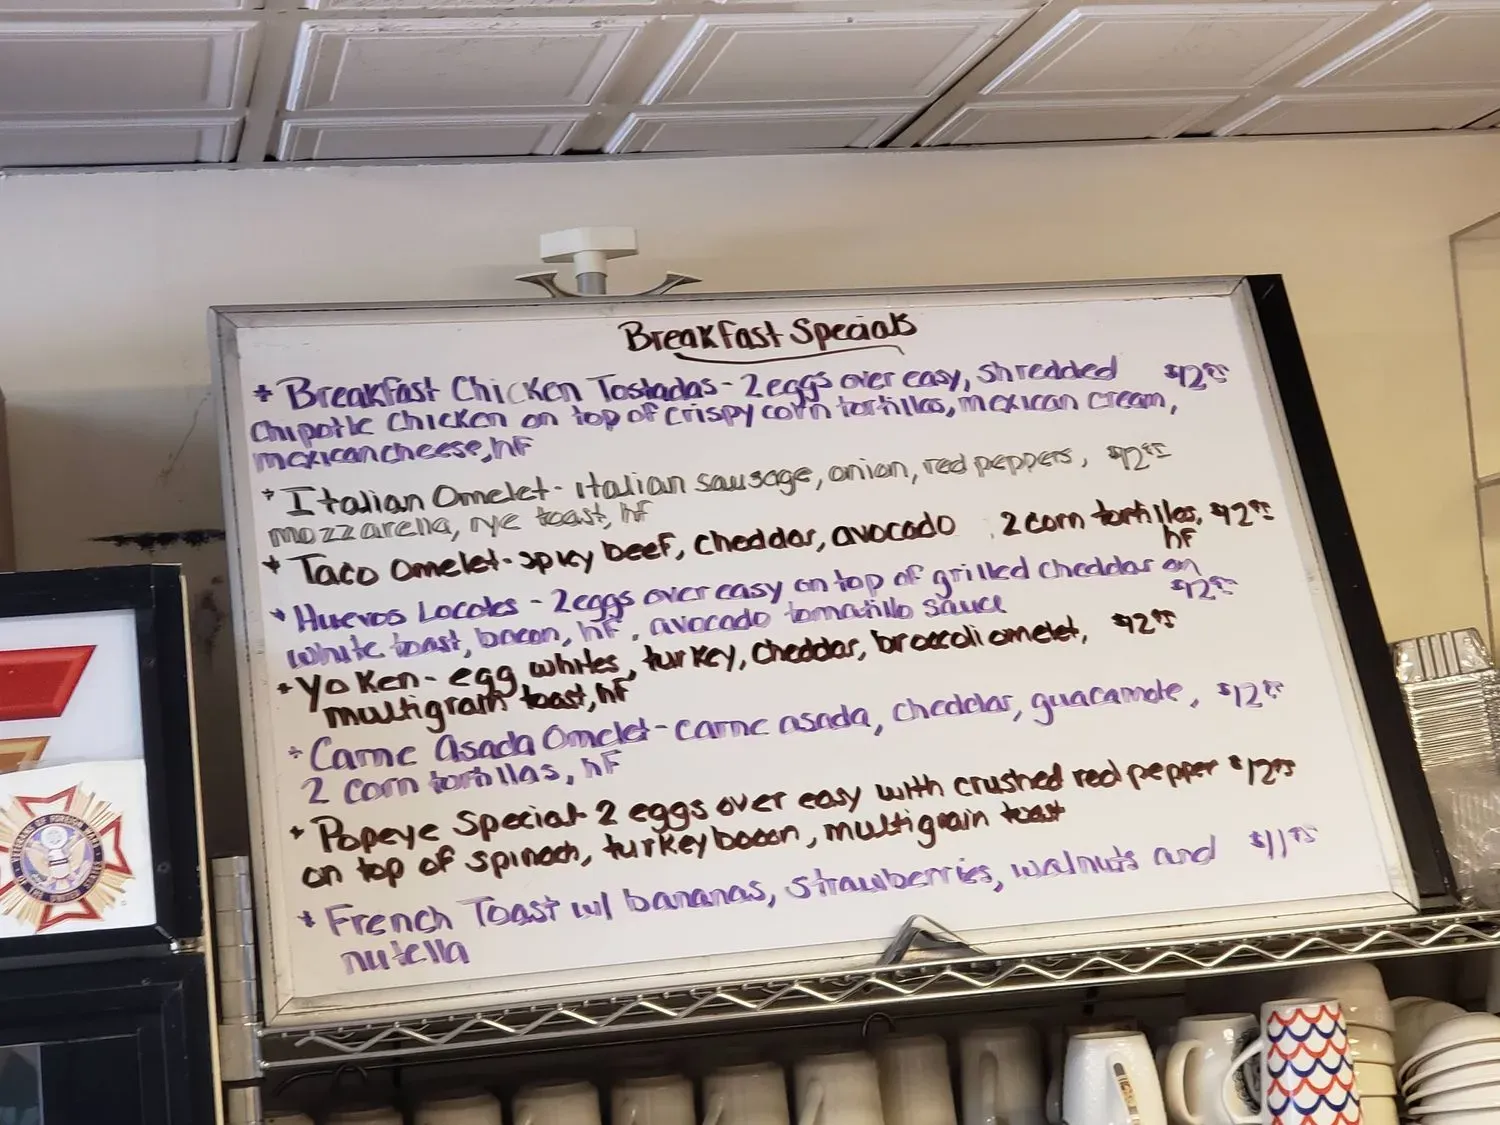 Breakfast Specials
* Breakfast Chicken Tostadas - 2 eggs over easy, shredded $12.95
Chipotle Chicken on top of crispy corn tortillas, mexican cream,
mexican cheese, hF
* Italian Omelet - italian sausage, onion, red peppers, $12.95
mozzarella, rye toast, hf
* Taco Omelet - spicy beef, cheddar, avocado 2 corn tortillas, $12.95
hF
* Huevos Locotes - 2 eggs over easy on top of grilled cheddar on
white toast, bacon, hF, avocado tomatillo sauce $12.95
* Yo Ken - egg whites, turkey, cheddar, broccoli omelet, $12.95
multigrain toast, hF
* Carne Asada Omelet - carne asada, cheddar, guacamole, $12.95
2 corn tortillas, hF
* Popeye Special - 2 eggs over easy with crushed red pepper $12.95
on top of spinach, turkey bacon, multigrain toast
* French Toast w/ bananas, strawberries, walnuts and $11.95
nutella
VETERANS OF FOREIGN WARS